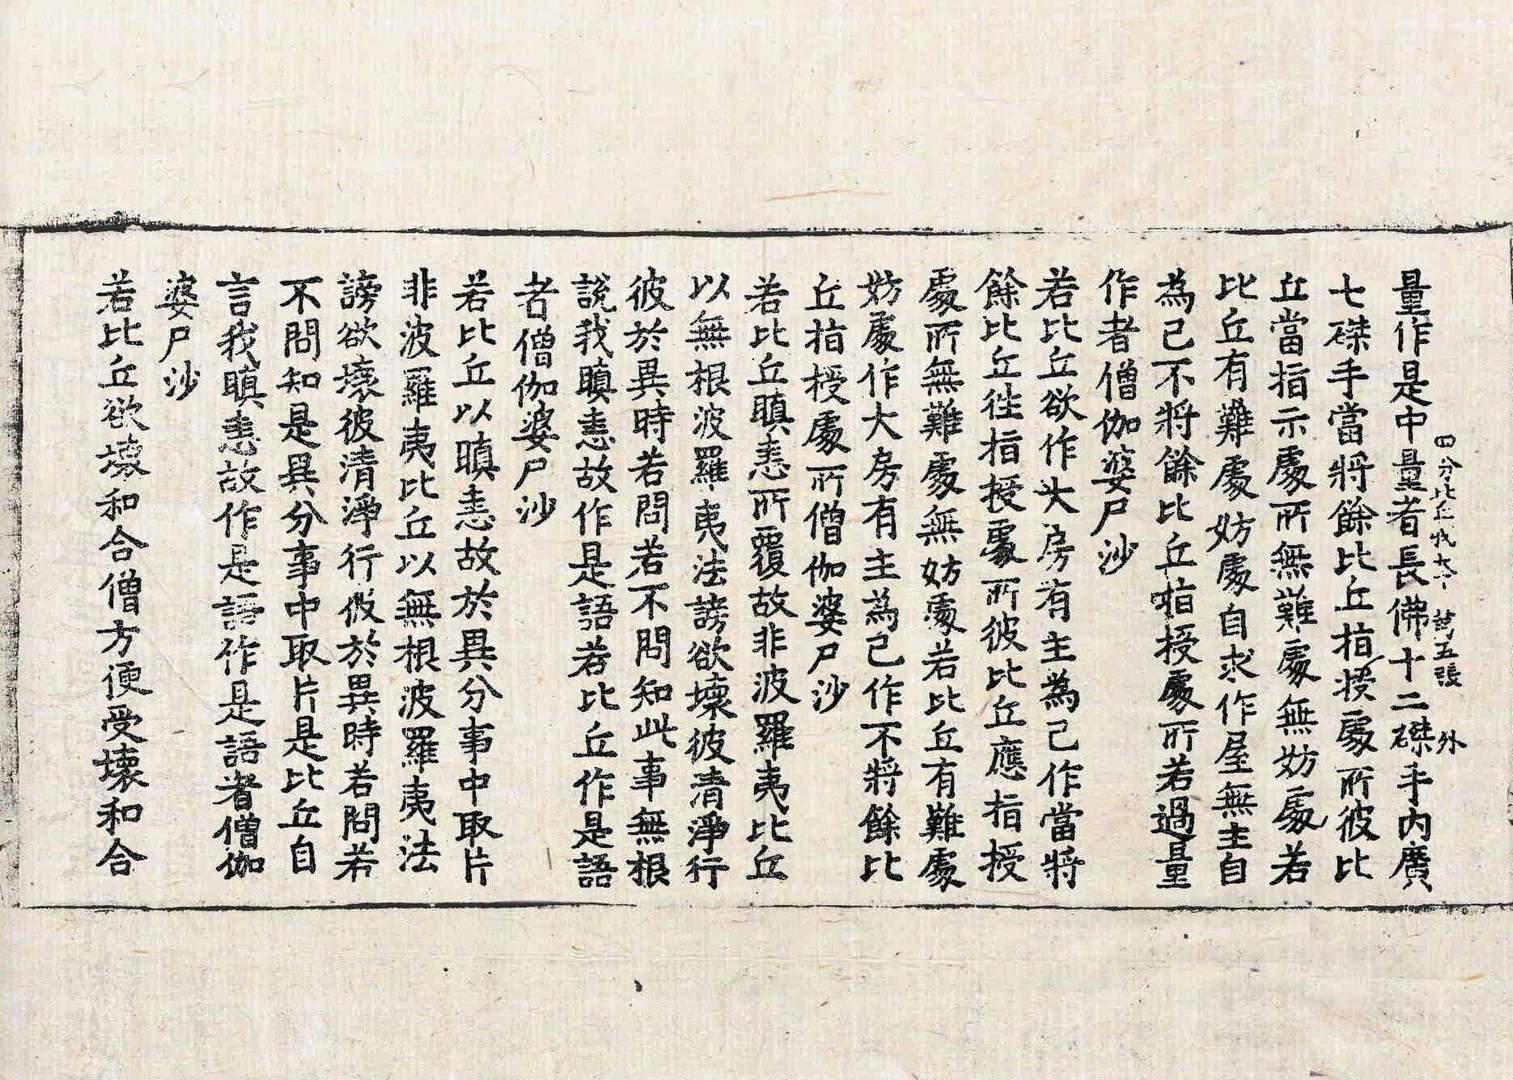 量作是中量者長佛十二磔手內廣
四分比丘戒本 第五張 外
七磔手當將餘比丘指授處所彼比
丘當指示處所無難處無妨處若
比丘有難處妨處自求作屋無主自
為己不將餘比丘指授處所若過量
作者僧伽婆尸沙
若比丘欲作大房有主為己作當將
餘比丘徃指授處所彼比丘應指授
處所無難處無妨處若比丘有難處
妨處作大房有主為己作不將餘比
丘指授處所僧伽婆尸沙
若比丘瞋恚所覆故非波羅夷比丘
以無根波羅夷法謗欲壞彼清淨行
彼於異時若問若不問知此事無根
說我瞋恚故作是語若比丘作是語
者僧伽婆尸沙
若比丘以瞋恚故於異分事中取片
非波羅夷比丘以無根波羅夷法
謗欲壞彼清淨行彼於異時若問若
不問知是異分事中取片是比丘自
言我瞋恚故作是語作是語者僧伽
婆尸沙
若比丘欲壞和合僧方便受壞和合